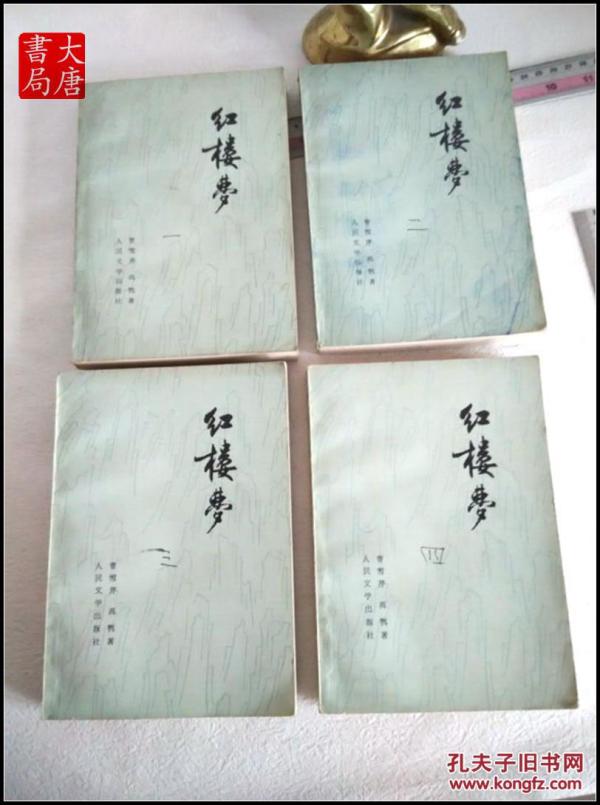 大唐
書局
红楼梦
一
曹雪芹 高鹗著
人民文学出版社
红楼梦
二
曹雪芹 高鹗著
人民文学出版社
红楼梦
三
曹雪芹 高鹗著
人民文学出版社
红楼梦
四
曹雪芹 高鹗著
人民文学出版社
10 11
孔夫子旧书网
www.kongfz.com